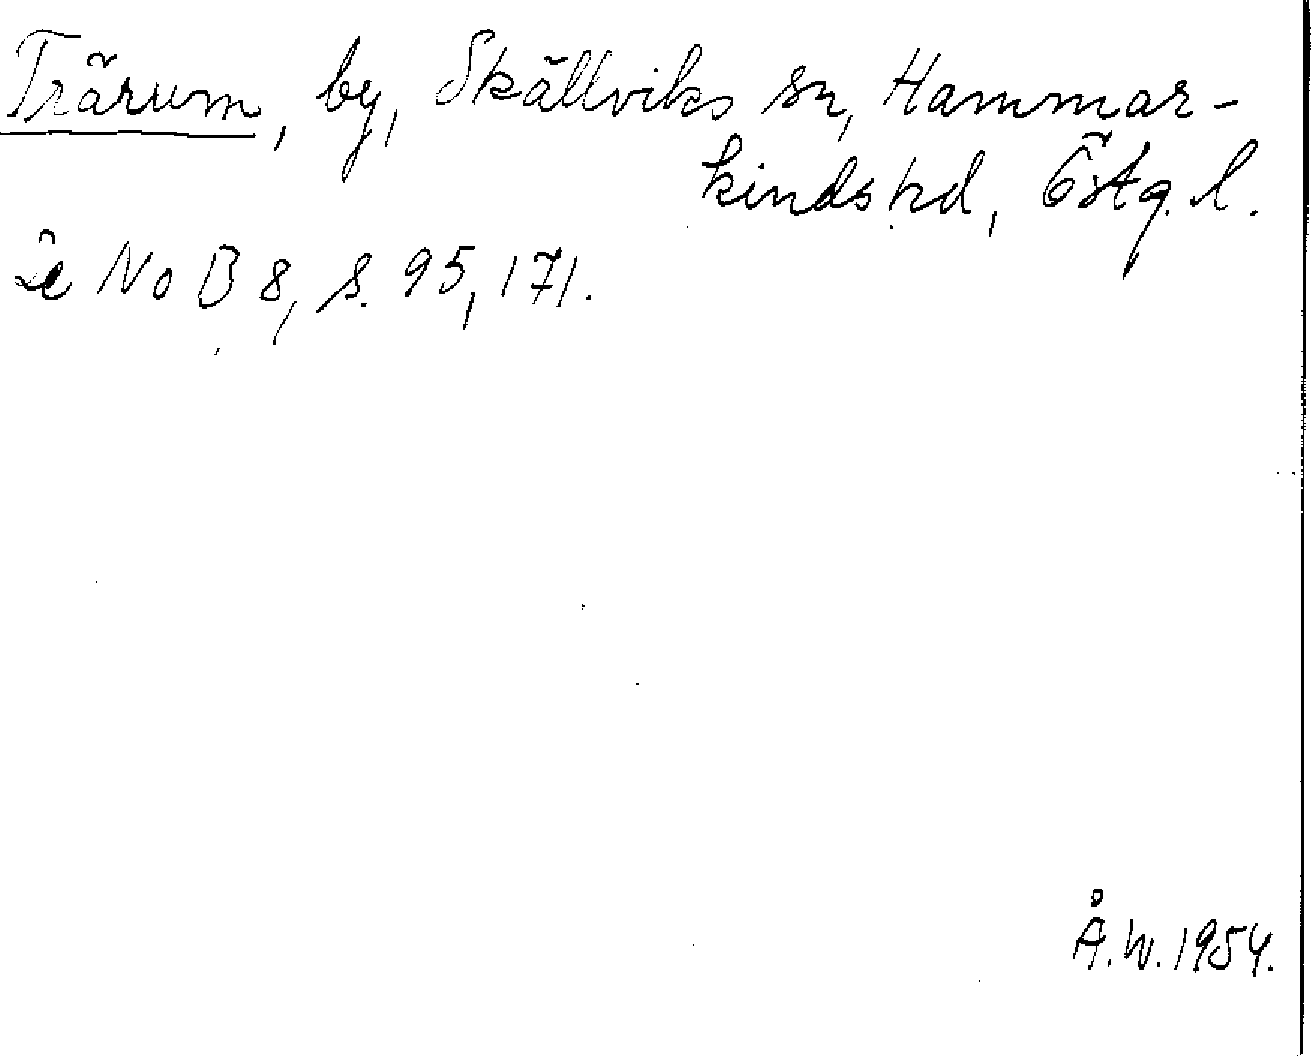 Trärum, by, Skällviks sn, Hammar-
kinds hd, Östg. l.
Se NoB 8, s. 95, 171.
Å.W. 1954.